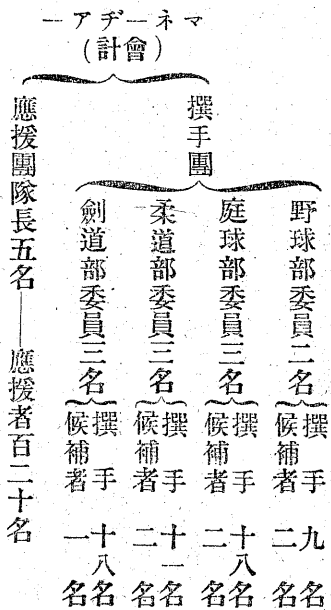 マネーヂアー
(會計)
撰手團
野球部委員二名
撰手 九名
候補者 二名
庭球部委員三名
撰手 十八名
候補者 二名
柔道部委員三名
撰手 十一名
候補者 二名
劍道部委員三名
撰手 十八名
候補者 一名
應援團隊長五名——應援者百二十名